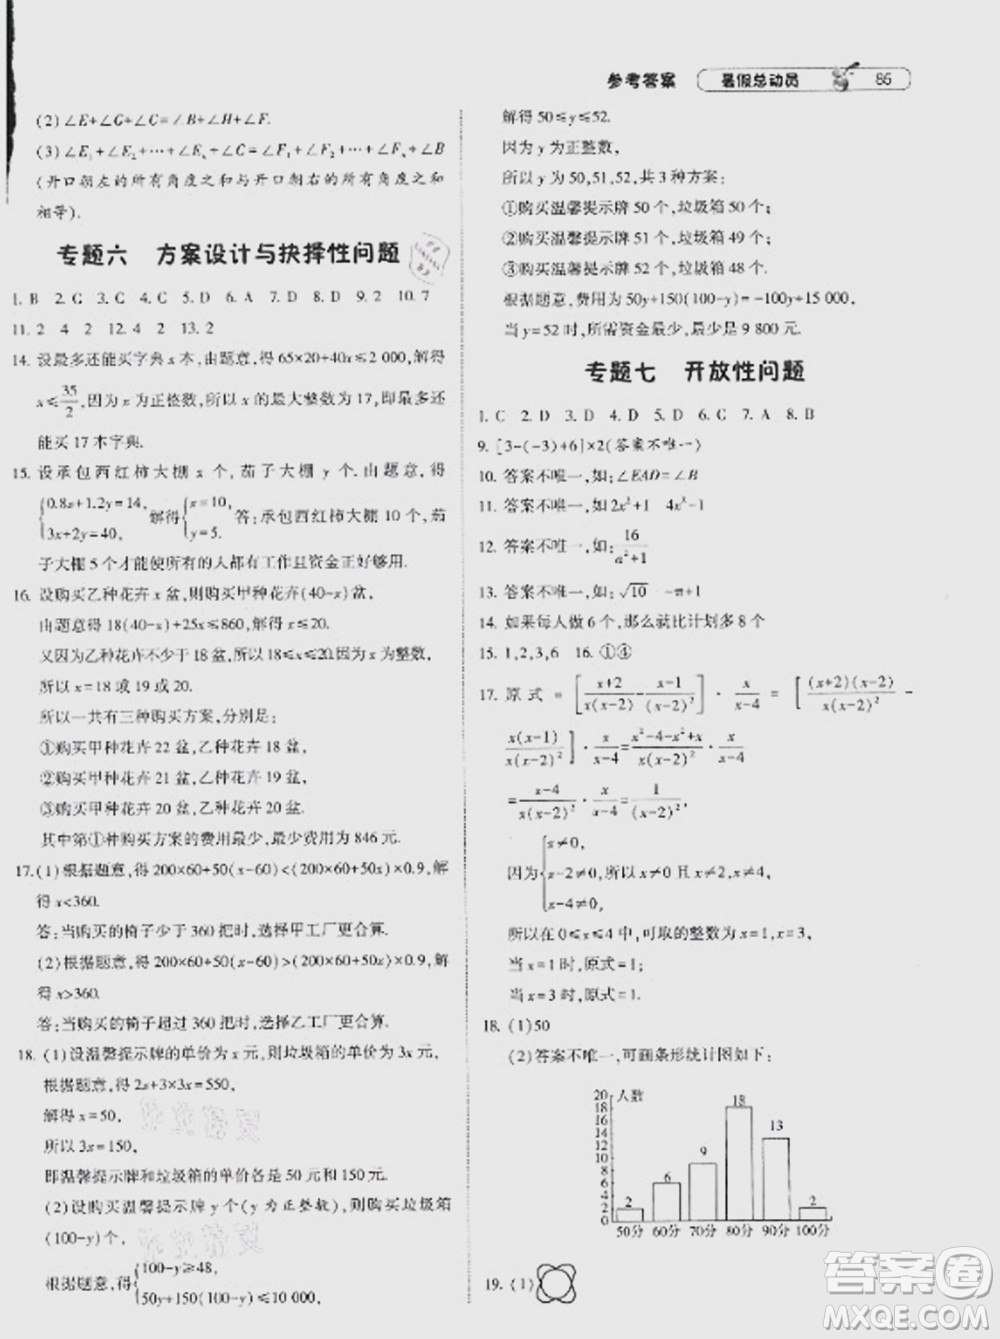 参考答案 暑假总动员 85
(2) ∠E+∠G+∠C=∠B+∠H+∠F.
(3) ∠E₁+∠E₂+⋯+∠Eₙ+∠C=∠F₁+∠F₂+⋯+∠Fₙ+∠B
(开口朝左的所有角度之和与开口朝右的所有角度之和
相等).
专题六 方案设计与抉择性问题
1. B 2. G 3. C 4. C 5. D 6. A 7. D 8. D 9. 2 10. 7
11. 2 4 2 12. 4 2 13. 2
14. 设最多还能买字典 x 本,由题意,得 65×20+40x≤2 000,解得
x≤35/2,因为 x 为正整数,所以 x 的最大整数为 17,即最多还
能买 17 本字典.
15. 设承包西红柿大棚 x 个,茄子大棚 y 个.由题意,得
{0.8x+1.2y=14, 3x+2y=40, 解得{x=10, y=5. 答:承包西红柿大棚 10 个,茄
子大棚 5 个才能使所有的人都有工作且资金正好够用.
16. 设购买乙种花卉 x 盆,则购买甲种花卉(40-x)盆,
由题意得 18(40-x)+25x≤860,解得 x≤20.
又因为乙种花卉不少于 18 盆,所以 18≤x≤20.x 为整数,
所以 x=18 或 19 或 20.
所以一共有三种购买方案,分别是:
①购买甲种花卉 22 盆,乙种花卉 18 盆;
②购买甲种花卉 21 盆,乙种花卉 19 盆;
③购买甲种花卉 20 盆,乙种花卉 20 盆.
其中第①种购买方案的费用最少,最少费用为 846 元.
17. (1)根据题意,得 200×60+50(x-60)<(200×60+50x)×0.9,解
得 x<360.
答:当购买的椅子少于 360 把时,选择甲工厂更合算.
(2)根据题意,得 200×60+50(x-60)>(200×60+50x)×0.9,解得
x>360.
答:当购买的椅子超过 360 把时,选择乙工厂更合算.
18. (1)设温馨提示牌的单价为 x 元,则垃圾箱的单价为 3x 元,
根据题意,得 2x+3×3x=550,
解得 x=50,
所以 3x=150,
即温馨提示牌和垃圾箱的单价各是 50 元和 150 元.
(2)设购买温馨提示牌 y 个(y 为正整数),则购买垃圾箱
(100-y)个,
根据题意,得{100-y≥48, 50y+150(100-y)≤10 000,
解得 50≤y≤52.
因为 y 为正整数,
所以 y 为 50,51,52,共 3 种方案:
①购买温馨提示牌 50 个,垃圾箱 50 个;
②购买温馨提示牌 51 个,垃圾箱 49 个;
③购买温馨提示牌 52 个,垃圾箱 48 个.
根据题意,费用为 50y+150(100-y)=-100y+15 000,
当 y=52 时,所需资金最少,最少是 9 800 元.
专题七 开放性问题
1. C 2. D 3. D 4. D 5. D 6. C 7. A 8. B
9. [3-(-3)+6]×2(答案不唯一)
10. 答案不唯一,如:∠EAD=∠B
11. 答案不唯一,如:2x²+1 4x²-1
12. 答案不唯一,如:16/(a²+1)
13. 答案不唯一,如:√10 -π+1
14. 如果每人做 6 个,那么就比计划多 8 个
15. 1,2,3,6 16. ①④
17. 原式=[(x+2)/(x(x-2))-(x-1)/(x-2)²]·x/(x-4)=[(x+2)(x-2)/(x(x-2)²)-
x(x-1)/(x(x-2)²)]·x/(x-4)=(x²-4-x²+x)/(x(x-2)²)·x/(x-4)
=(x-4)/(x(x-2)²)·x/(x-4)=1/(x-2)².
因为{x≠0, x-2≠0, x-4≠0,
所以在 0≤x≤4 中,可取的整数为 x=1,x=3,
当 x=1 时,原式=1;
当 x=3 时,原式=1.
18. (1)50
(2)答案不唯一,可画条形统计图如下:
人数
20 18 16 14 12 10 8 6 4 2 0
2 6 9 18 13 2
50分 60分 70分 80分 90分 100分
19. (1)
答案圈
MXQE.COM